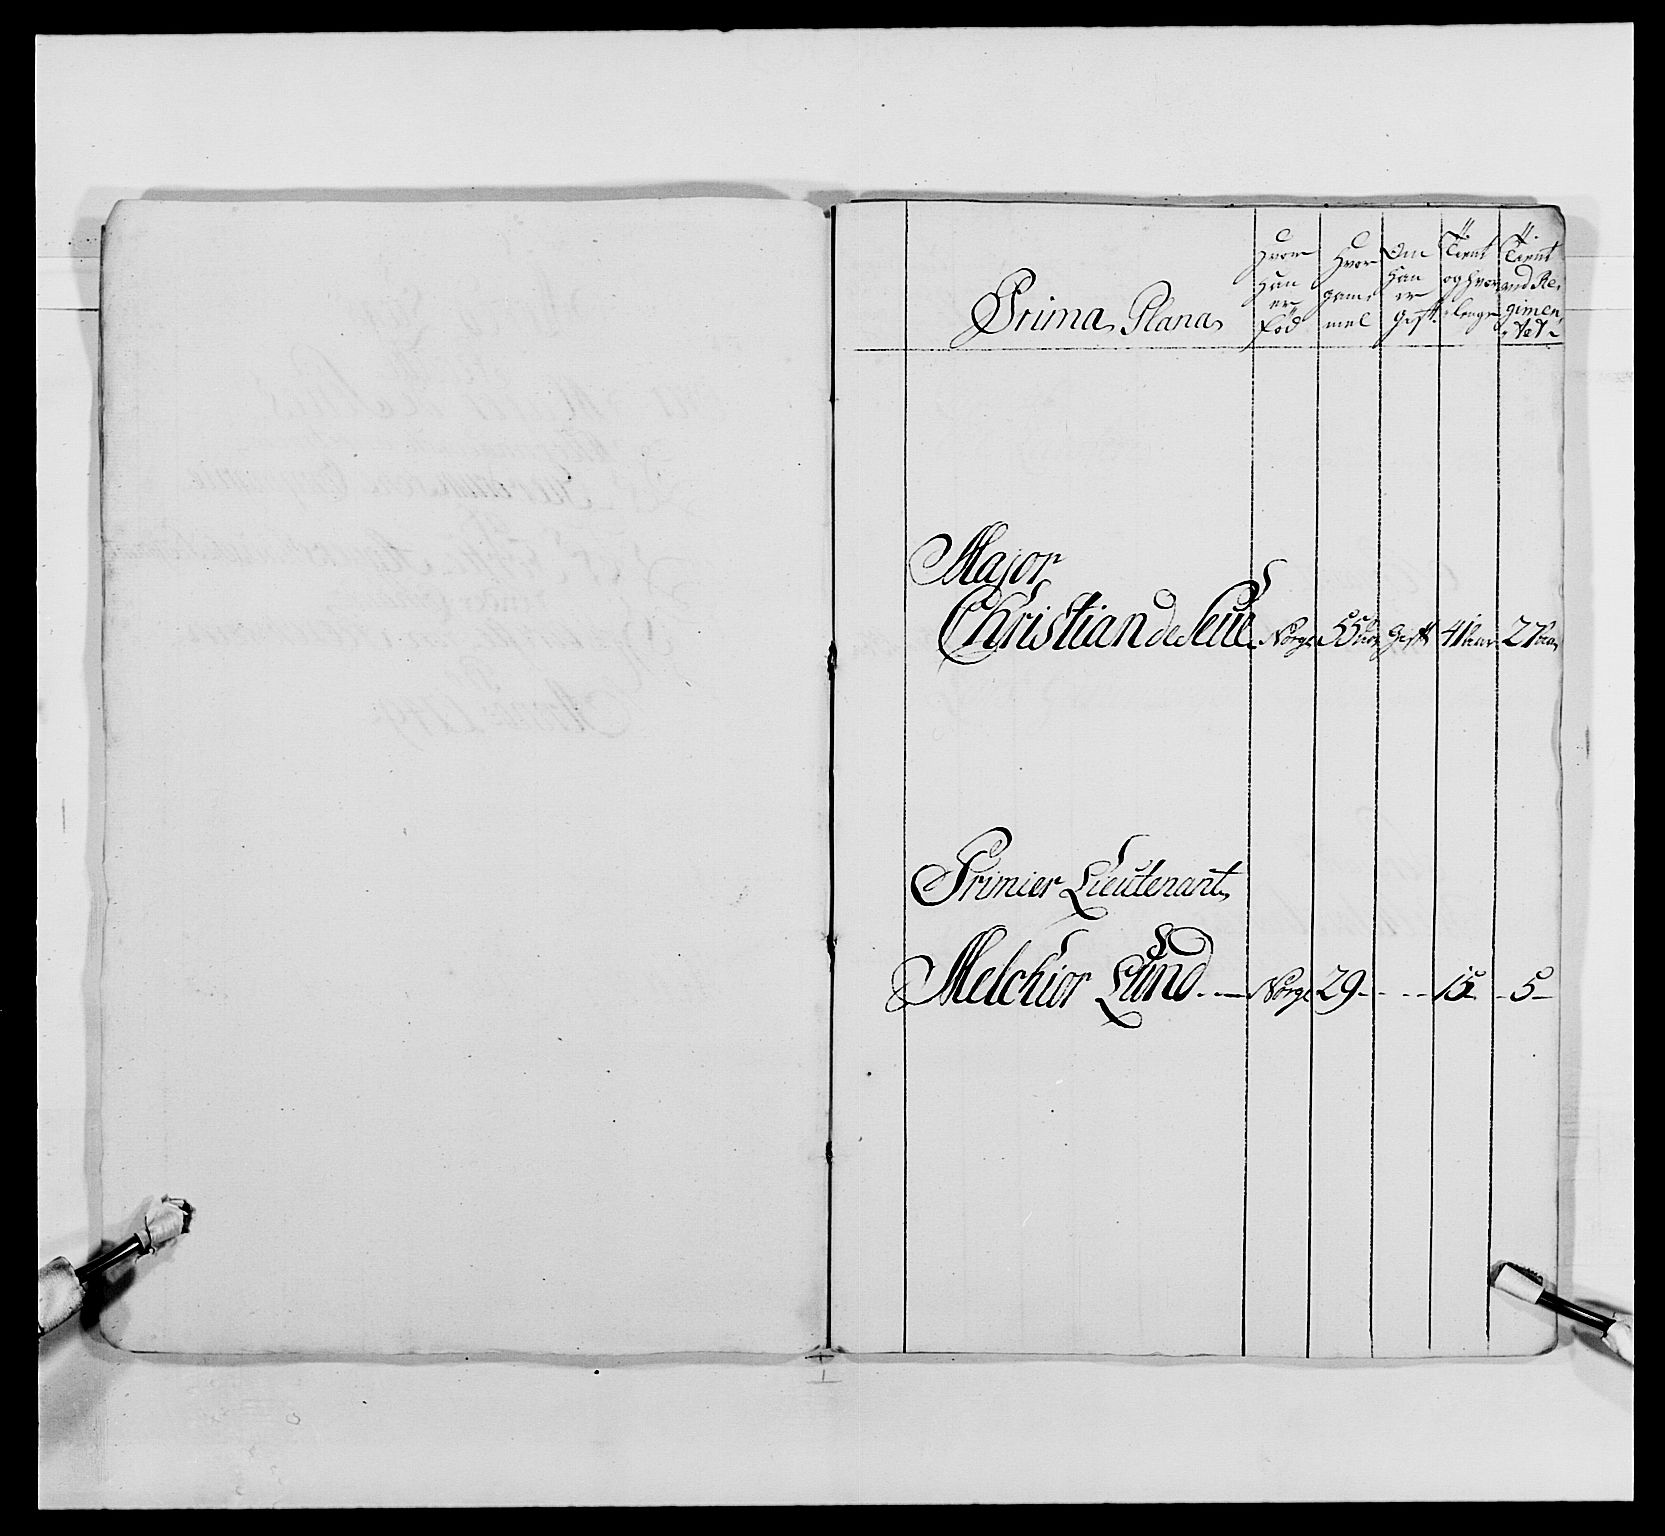 Prima Plana
Hvor han er fød
Hvor gam- mel
Om han er Gift
Tient og hvor lenge
Tient ved Re- gimen- tet
Major
Christian de Seue Norge 55 aar Gift 41 aar 27 aar
Primier Lieutenant
Melchior Lund Norge 29 - 15 - 5 -